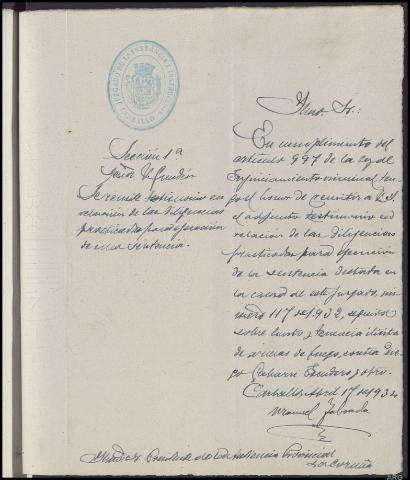 JUZGADO DE 1ª INSTANCIA E INSTRUCCION
CARBALLO
Sección 1ª
Se remite testimonio en
relación de las diligencias
practicadas para ejecución
de una sentencia.
Ilmo. Sr.:
En cumplimiento del
artículo 997 de la ley de
Enjuiciamiento criminal ten-
go el honor de remitir a V.I.
el adjunto testimonio en
relación de las diligencias
practicadas para ejecución
de la sentencia dictada en
la causa de este Juzgado, nú-
mero 117 de 1932, seguida
sobre hurto y tenencia ilícita
de armas de fuego, contra
Escudero y otro.
Carballo Abril 17 de 1934
Manuel Taboada
Ilmo. Sr. Presidente de la Audiencia Provincial
La Coruña
ARG